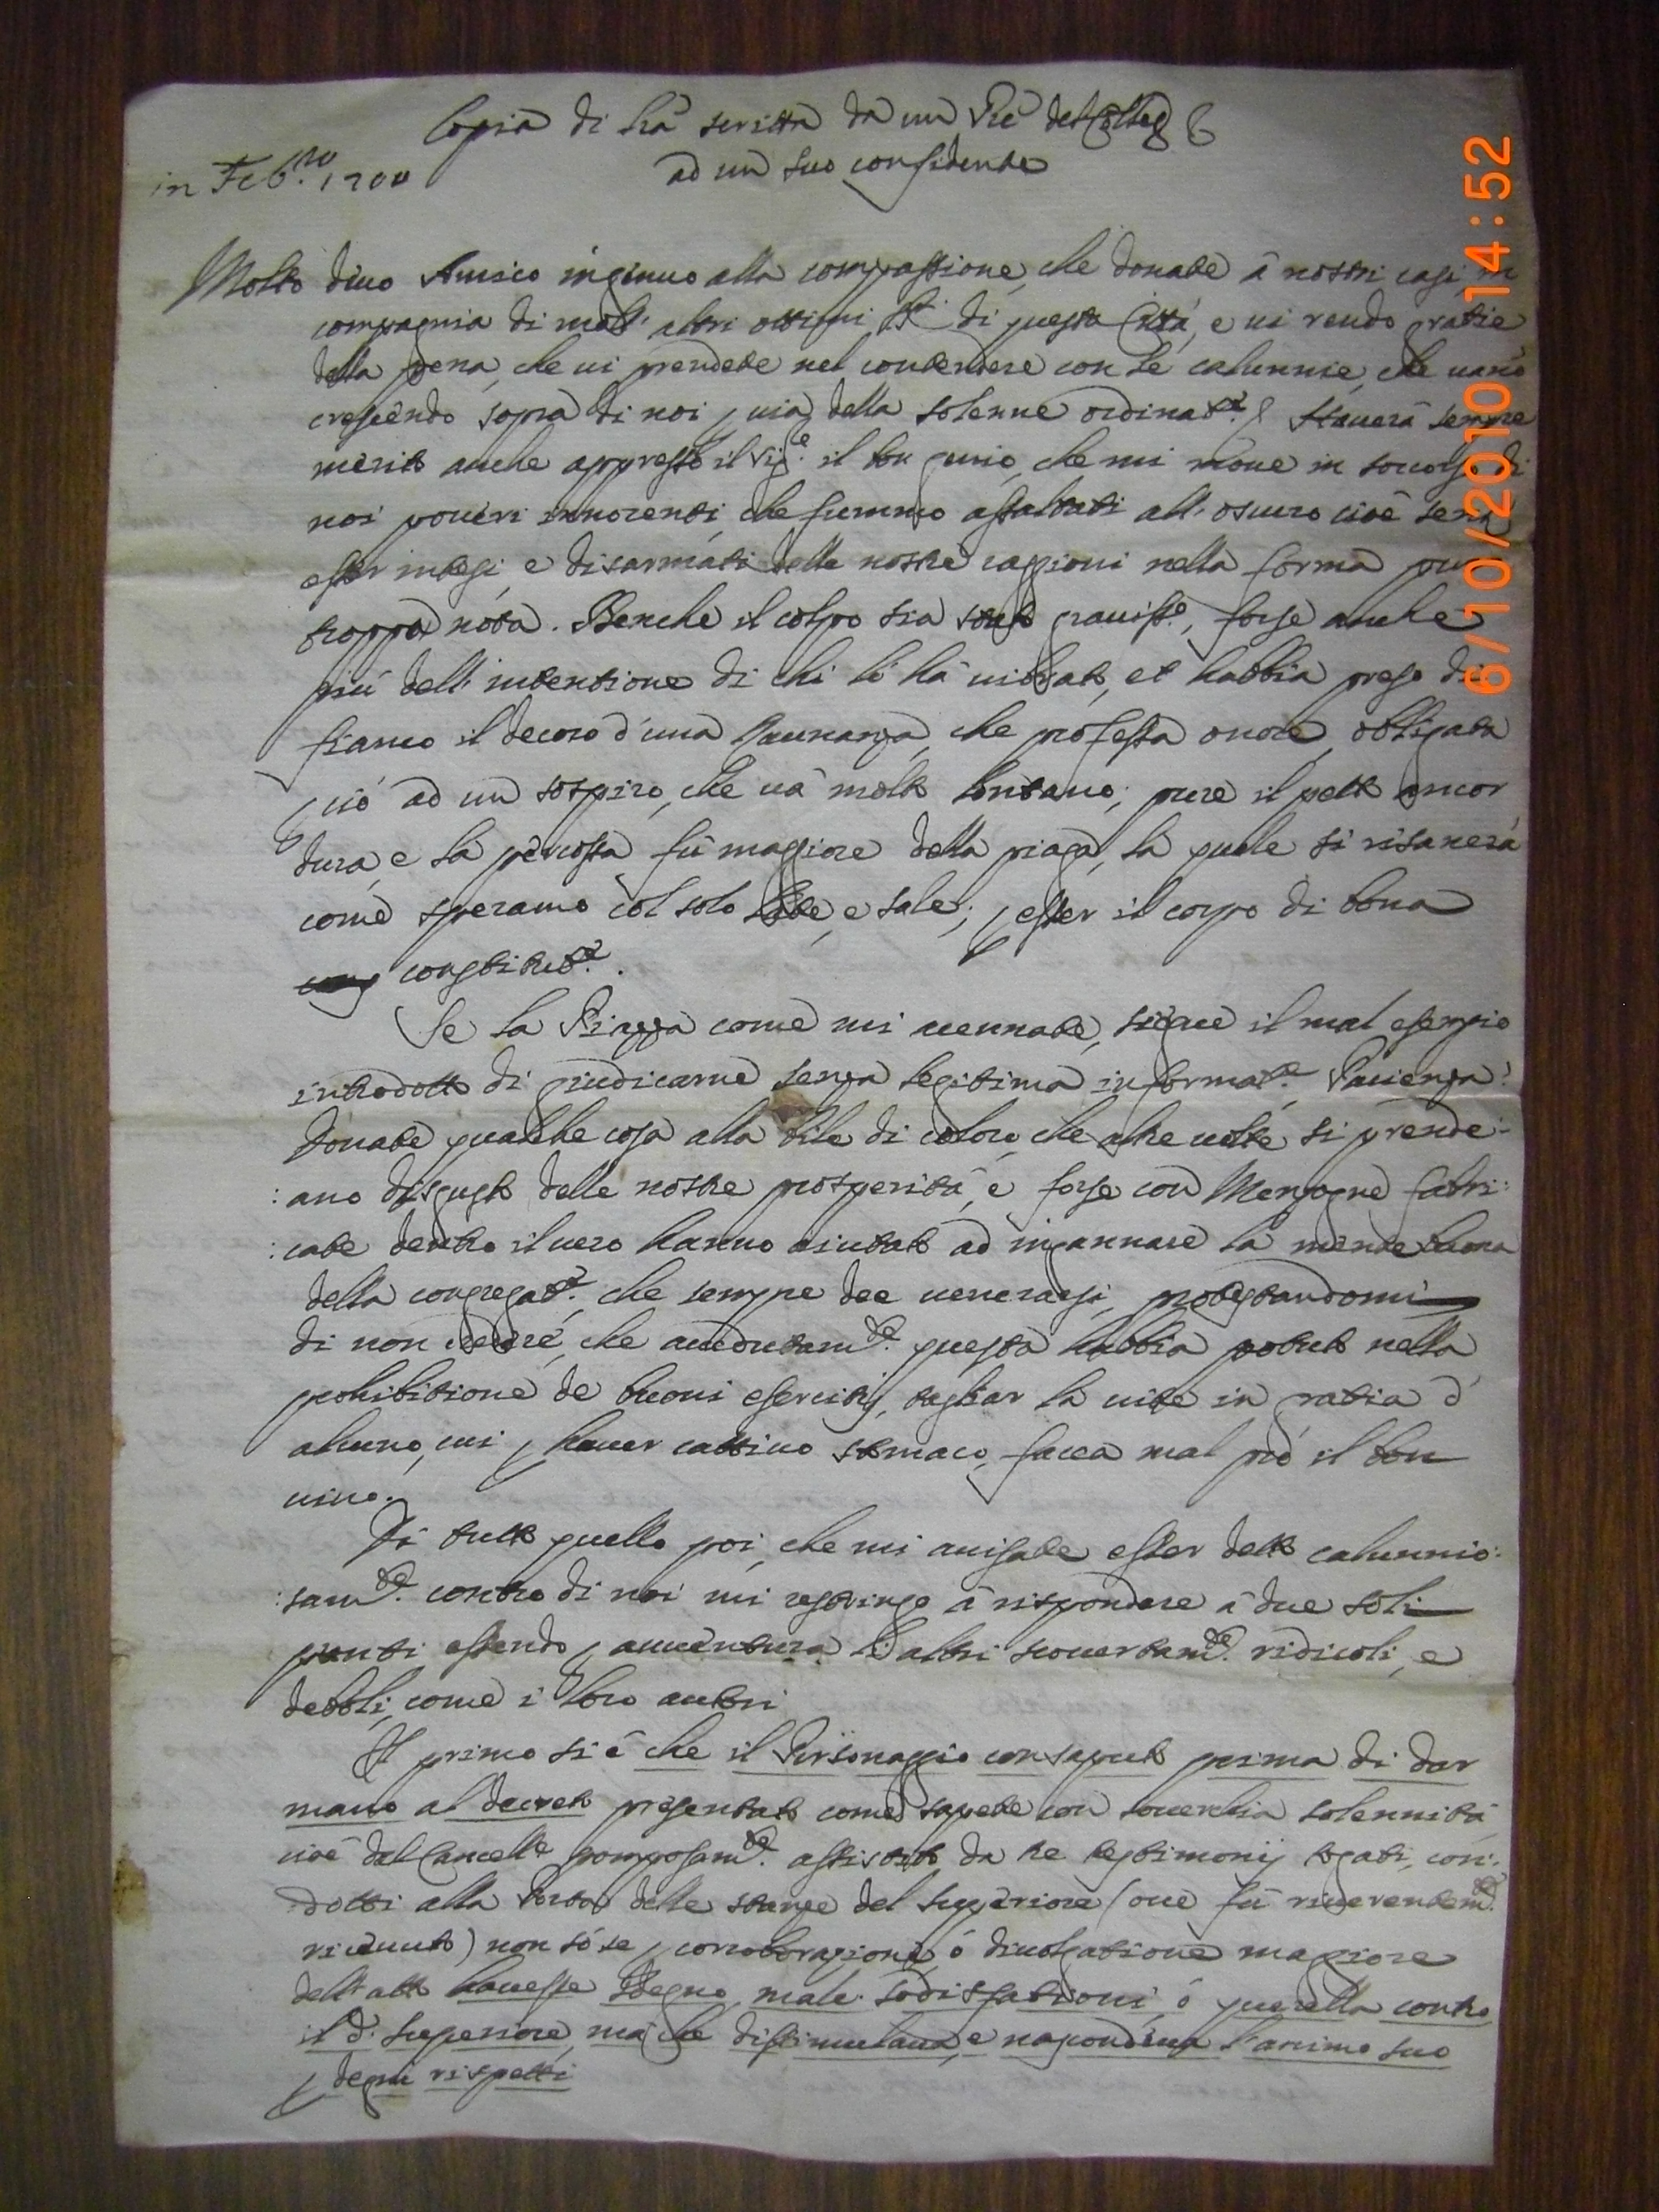 Copia di Lra scritta da un Pre del Colleg
in Feb.ro 1700
ad un suo confidente
Molto devo Amico ingenuo alla compassione, che donate à nostri casi, in
compagnia di molt' altri ottimi SS.ri di questa Città, e vi rendo gratie
della pena, che vi prendete nel contendere con le calunnie, che vano
crescendo sopra di noi, via della solenne ordinat.e
merito anche appresso il Sig.e il bon genio, che mi move in soccorso di
noi poveri innocenti, che fummo assaltati all' oscuro cioè senza
esser intesi, e disarmati delle nostre raggioni nella forma pur
troppo nota. Benche il colpo sia stato graviss.o, forse anche
più dell' intentione di chi lo hà vibrato, et habbia preso di
fianco il decoro d'una Raunanza, che professa onore, obligata
perciò ad un sospiro, che và molto lontano; pure il petto ancor
dura, e la percossa fù maggiore della piaga, la quale si risanerà
come speramo col solo latte, e sale; per esser il corpo di bona
constitut.e.
Se la Piazza come mi accennate, siegue il mal esempio
introdotto di giudicarne senza legitima informat.e Pacienza!
Donate qualche cosa alla bile di coloro, che altre volte si prende:
:ano disgusto delle nostre prosperità, e forse con Menzogne fabri:
:cate dentro il vero hanno aiutato ad ingannare la mente buona
della congregat.e, che sempre dee venerarsi, protestandomi
di non credere, che avedutam.te questa habbia potuto nella
prohibitione de buoni esercitij, tagliar la vite in gratia d'
alcuno, cui per haver cattivo stomaco, facea mal prò il bon
vino.
Di tutto quello poi, che mi avisate esser detto calunnio:
:sam.te contro di noi mi restringo à rispondere à due soli
punti essendo per avventura li altri scovertam.te ridicoli, e
debboli, come i loro autori
Il primo si è che il Personaggio consaputo prima di dar
mano al decreto presentato come sapete con soverchia solennità
cioè dal Cancell.e pomposam.te assistito da tre testimonij togati, con:
:dotti alla Porta delle stanze del Superiore (ove fù riverentem.te
ricevuto) non só se per corroborazione, ó divolgatione magiore
dell' atto havesse sdegno, male sodisfationi, ó querella contro
il d.o Superiore, mà che dissimulava, e nascondeva l'animo suo
per degni rispetti
6/10/2010 14:52